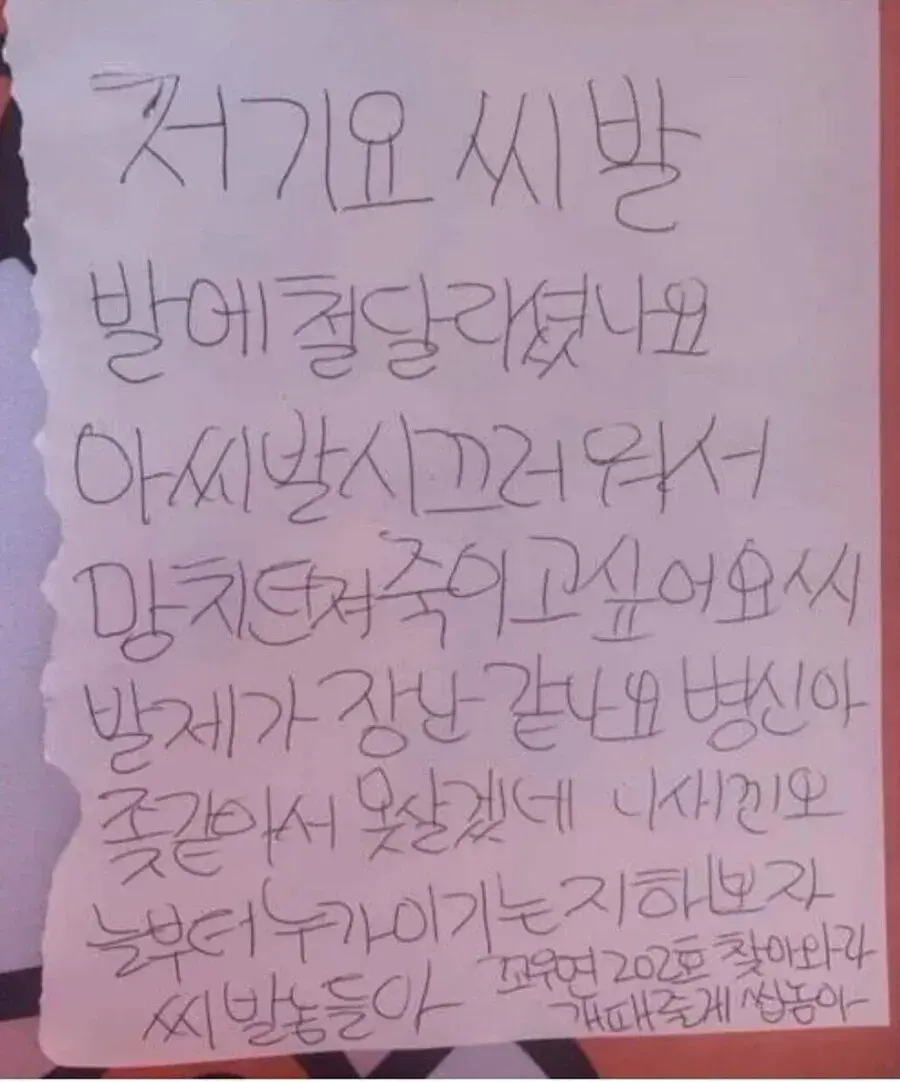 저기요 씨발
발에 철달라셨나요
아 씨발 시끄러워서
망치 던져 죽이고 싶어요 씨
발 제가 장난 같나요 병신아
좆같아서 못살겠네 니새낀 오
늘부터 누가 이기는지 해보자
씨발놈들아
꼬우면 202호 찾아와라
개패줄게 씹놈아